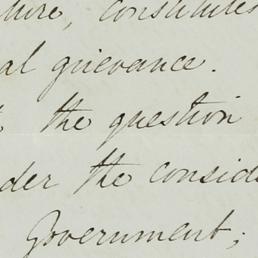 ture, constitutes
al grievance.
the question
der the consid
Government;